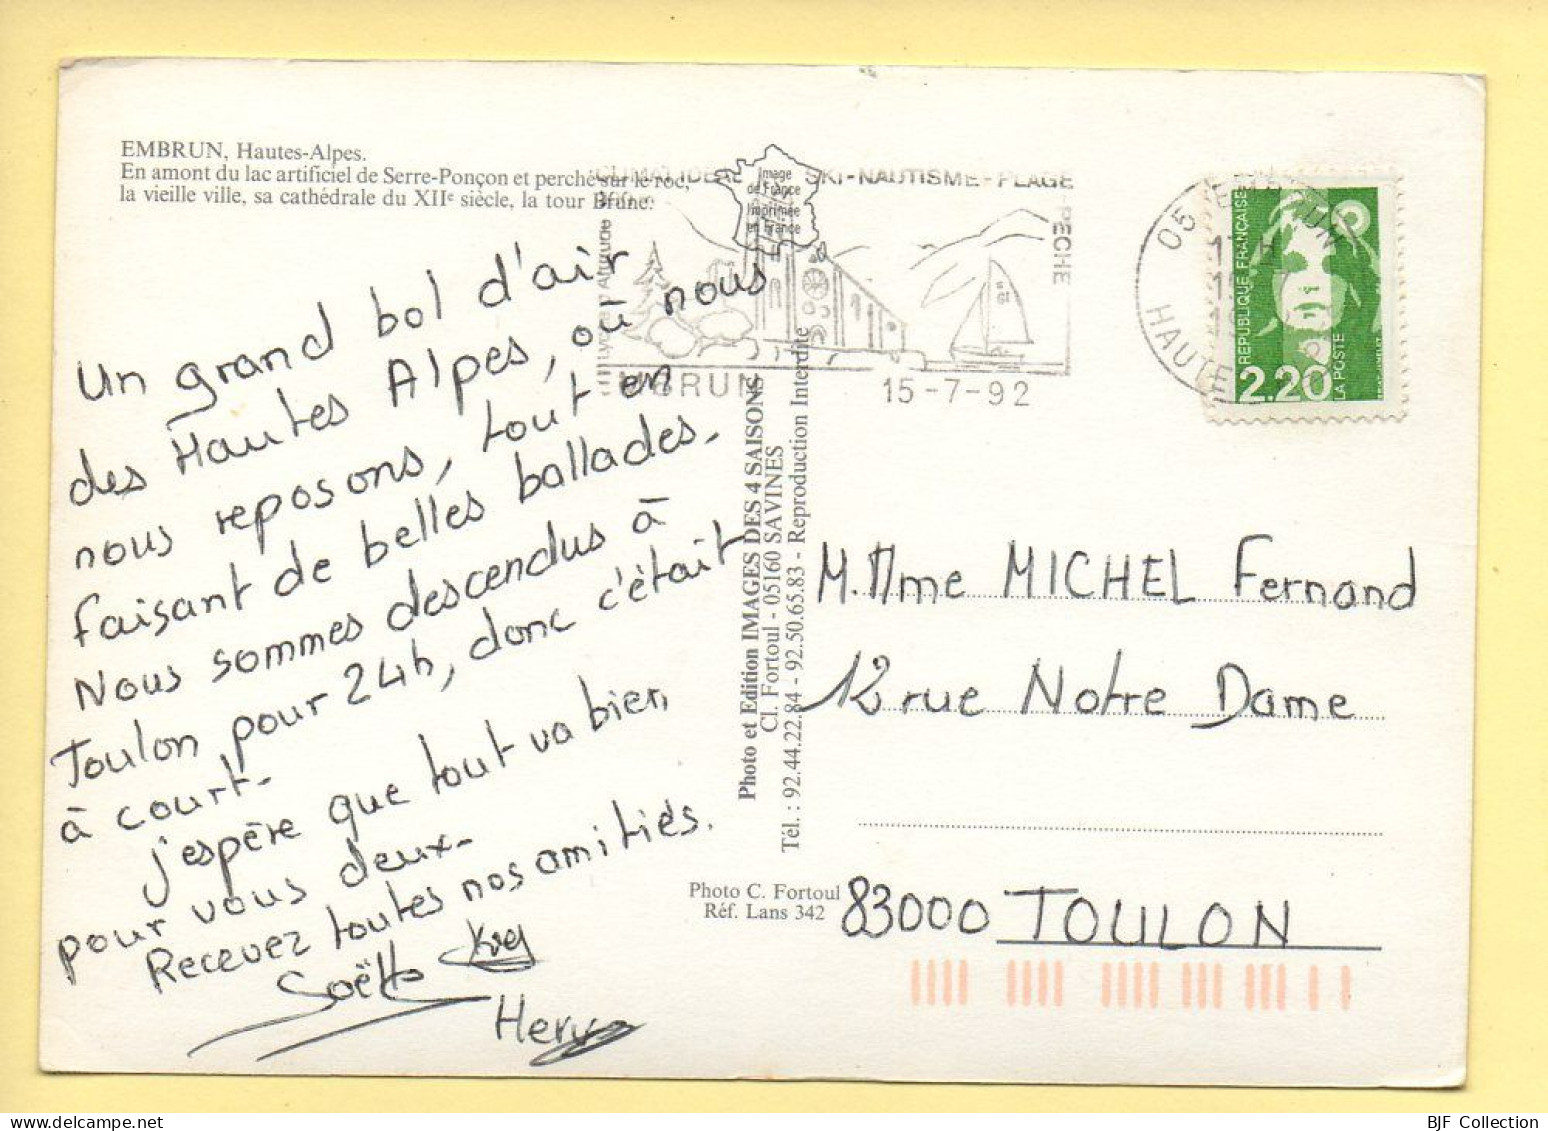 EMBRUN, Hautes-Alpes.
En amont du lac artificiel de Serre-Ponçon et perché sur le roc,
la vieille ville, sa cathédrale du XIIe siècle, la tour Brune.
Image
de France
Imprimée
en France
SKI-NAUTISME-PLAGE
PECHE
15-7-92
05 EMBRUN
HAUTES
REPUBLIQUE FRANÇAISE
2.20
LA POSTE
Un grand bol d'air
des Hautes Alpes, où nous
nous reposons, tout en
faisant de belles ballades.
Nous sommes descendus à
Toulon pour 24h, donc c'était
à court.
j'espère que tout va bien
pour vous deux.
Recevez toutes nos amitiés.
Photo et Edition IMAGES DES 4 SAISONS
Cl. Fortoul - 05160 SAVINES
Tél. : 92.44.22.84 - 92.50.65.83 - Reproduction Interdite
Photo C. Fortoul
Réf. Lans 342
M. Mme MICHEL Fernand
12 rue Notre Dame
83000 TOULON
BJF Collection